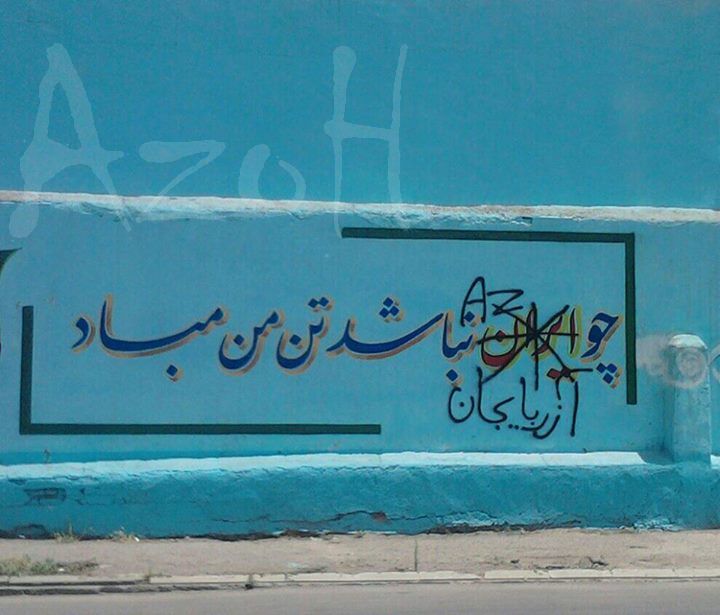 AzoH
چو ایران نباشد تن من مباد
AZ
آذربایجان